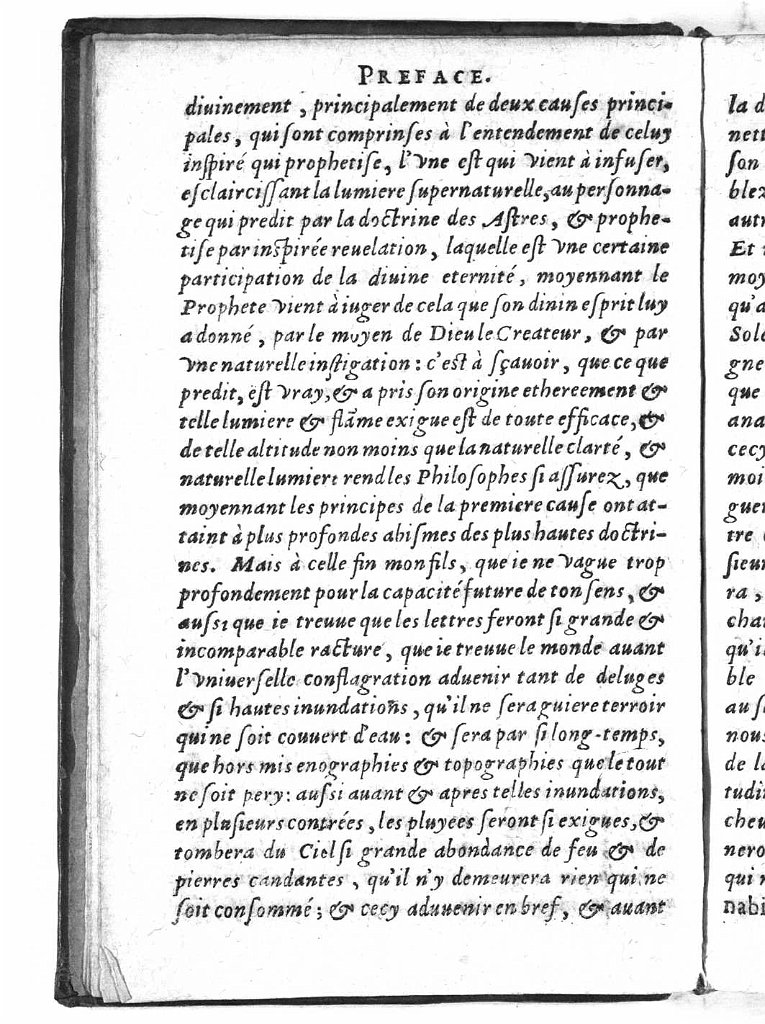 PREFACE.
diuinement, principalement de deux causes princi-
pales, qui sont comprinses à l'entendement de celuy
inspiré qui prophetise, l'vne est qui vient à infuser,
esclaircissant la lumiere supernaturelle, au personna-
ge qui predit par la doctrine des Astres, & prophe-
tise par inspirée reuelation, laquelle est vne certaine
participation de la diuine eternité, moyennant le
Prophete vient à iuger de cela que son dinin esprit luy
a donné, par le moyen de Dieu le Createur, & par
vne naturelle instigation: c'est à sçauoir, que ce que
predit, est vray, & a pris son origine ethereement &
telle lumiere & flãme exigue est de toute efficace, &
de telle altitude non moins que la naturelle clarté, &
naturelle lumiere rend les Philosophes si assurez, que
moyennant les principes de la premiere cause ont at-
taint à plus profondes abismes des plus hautes doctri-
nes. Mais à celle fin mon fils, que ie ne vague trop
profondement pour la capacité future de ton sens, &
aussi que ie treuue que les lettres feront si grande &
incomparable racture, que ie treuue le monde auant
l'vniuerselle conflagration aduenir tant de deluges
& si hautes inundations, qu'il ne sera guiere terroir
qui ne soit couuert d'eau: & sera par si long-temps,
que hors mis enographies & topographies que le tout
ne soit pery: aussi auant & apres telles inundations,
en plusieurs contrées, les pluyees seront si exigues, &
tombera du Ciel si grande abondance de feu & de
pierres candantes, qu'il n'y demeurera rien qui ne
soit consommé; & cecy aduuenir en bref, & auant
la d
nett
son
blez
autr
Et
moy
qu'a
Sole
gne
que
ana
cecy
moi
guer
tre
sieur
ra,
cha
qu'il
ble
au s
nous
de la
tudi
cheu
nero
qui n
nabi